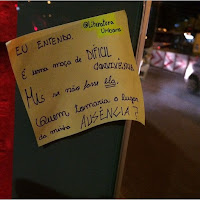 @Literatura
Urbana
EU ENTENDO,
É uma moça de DIFÍCIL
CONVIVÊNCIA
Mas se não fosse ela,
Quem tomaria o lugar
da minha AUSÊNCIA?